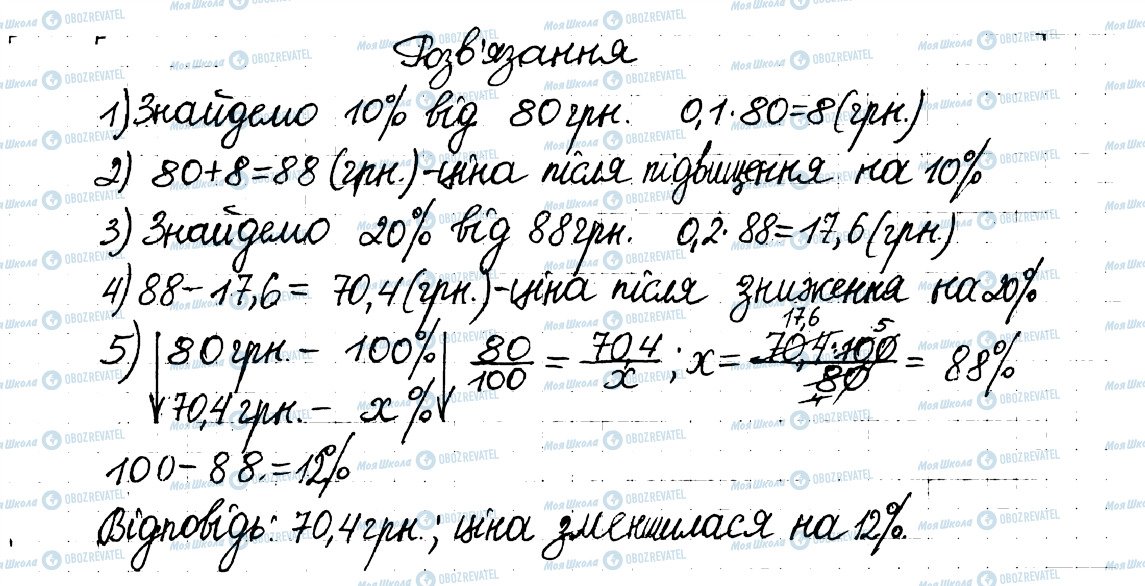 Розв'язання
1) Знайдемо 10% від 80 грн. 0,1·80=8(грн.)
2) 80+8=88 (грн.)-ціна після підвищення на 10%
3) Знайдемо 20% від 88 грн. 0,2·88=17,6(грн.)
4) 88-17,6= 70,4(грн.)-ціна після зниження на 20%
5) ↓80 грн. - 100%↓ 80/100 = 70,4/x; x= 70,4·100/80 = 88%
70,4 грн. - x%
100-88.=12%
Відповідь: 70,4 грн.; ціна зменшилася на 12%.